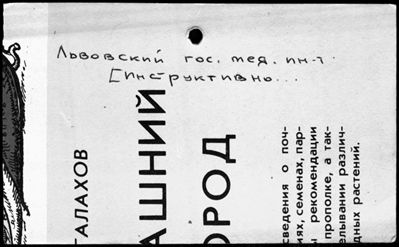 Львовский гос. мед. ин-т.
[Инструктивно...
ТАЛАХОВ
АШНИЙ
ОРОД
сведения о поч-
иях, семенах, пар-
ы рекомендации
прополке, а так-
елывании различ-
дных растений.